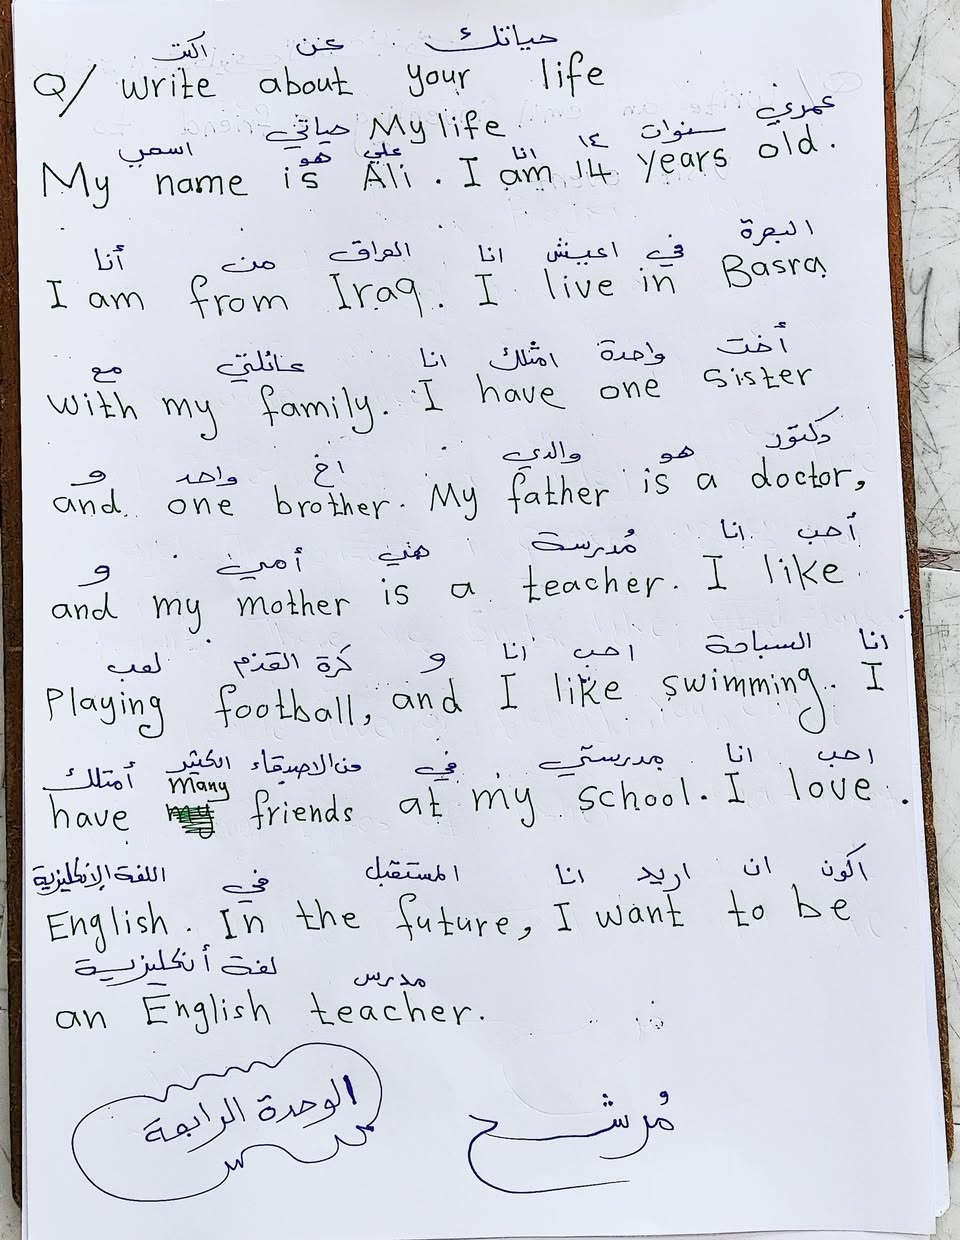 اكتب عن حياتك
Q/ write about your life
حياتي My life
اسمي هو علي انا ١٤ سنوات عمري
My name is Ali. I am 14 years old.
أنا من العراق انا اعيش في البصرة
I am from Iraq. I live in Basra
مع عائلتي انا امتلك واحدة أخت
with my family. I have one sister
و واحد اخ والدي هو دكتور
and one brother. My father is a doctor,
و أمي هي مُدرسة انا أحب
and my mother is a teacher. I like
لعب كرة القدم و انا احب السباحة انا
Playing football, and I like swimming. I
أمتلك الكثير من الاصدقاء في مدرستي انا احب
have many friends at my school. I love.
اللغة الإنكليزية في المستقبل انا اريد ان اكون
English. In the future, I want to be
مدرس لغة أنكليزية
an English teacher.
الوحدة الرابعة
مُرشح